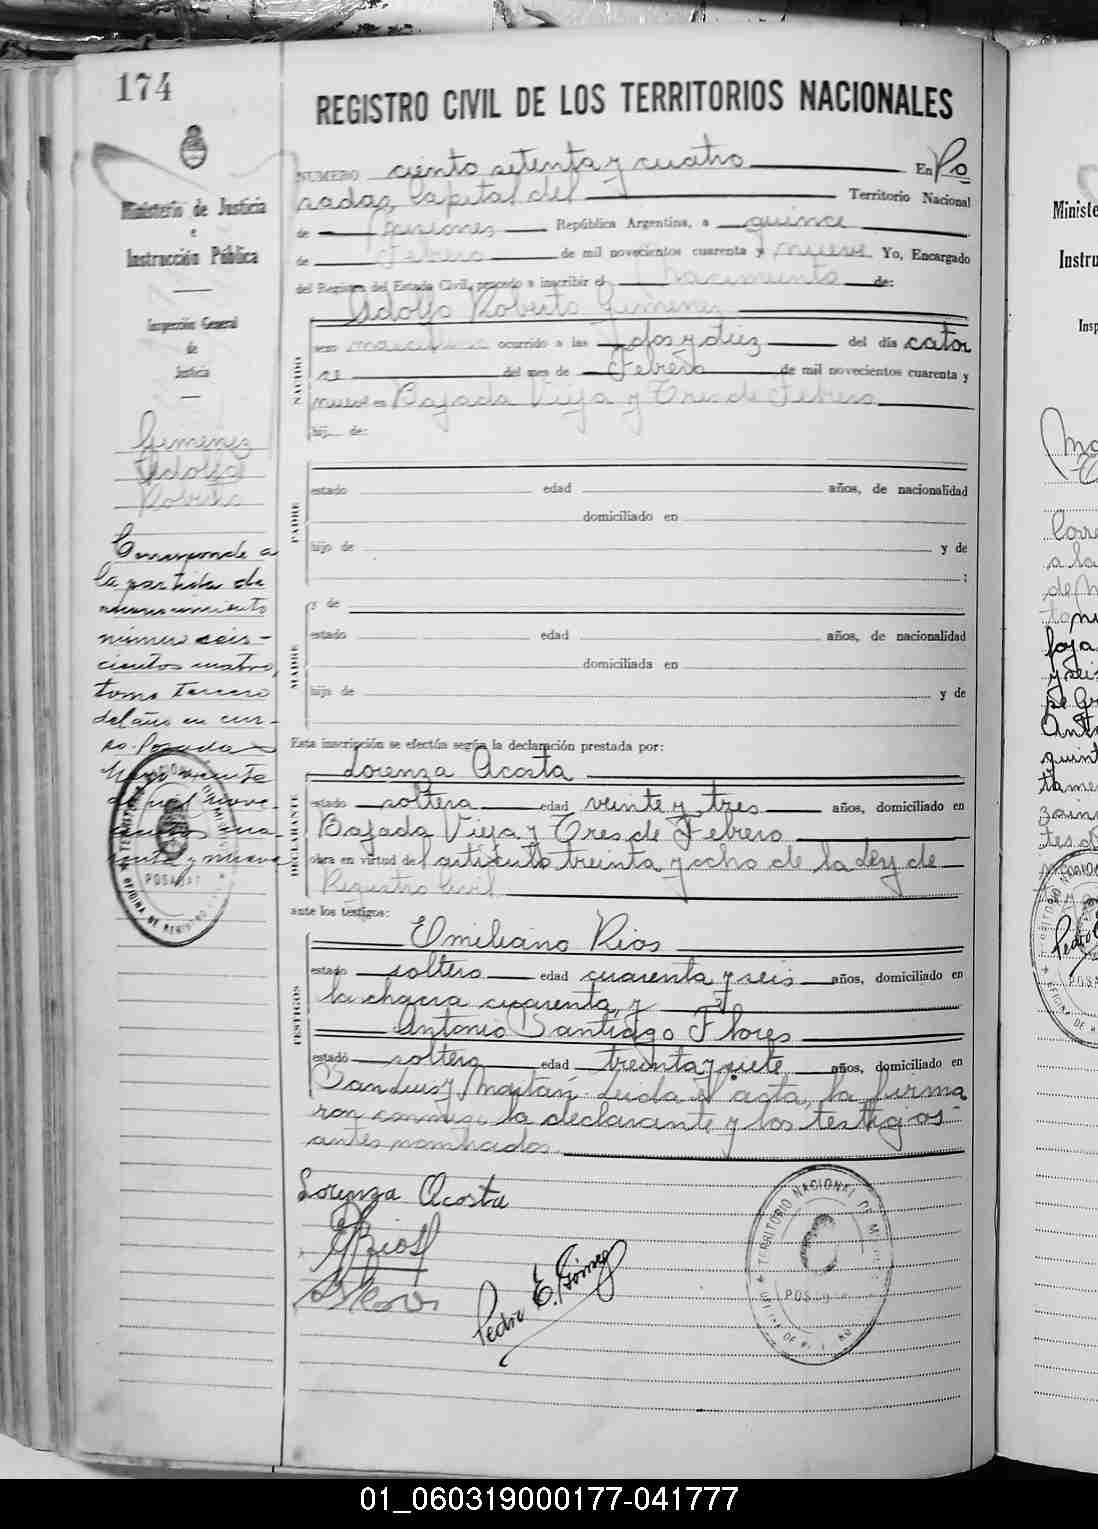 174
REGISTRO CIVIL DE LOS TERRITORIOS NACIONALES
Ministerio de Justicia
e
Instrucción Pública
Inspección General
de
Justicia
Gimenez
Adolfo
Roberto
Corresponde a
la partida de
reconocimiento
número seis-
cientos cuatro,
tomo tercero
del año en cur-
so. Posadas
Mayo veinte
de mil nove-
cientos cua-
renta y nueve
TERRITORIO NACIONAL
POSADAS
OFICINA DE REGISTRO
NUMERO ciento setenta y cuatro En Po
sadas, Capital del Territorio Nacional
de Misiones República Argentina, a quince
de Febrero de mil novecientos cuarenta y nueve Yo, Encargado
del Registro del Estado Civil, procedo a inscribir el Nacimiento de:
Adolfo Roberto Gimenez
NACIDO
sexo masculino ocurrido a las dos y diez del día cator
se del mes de Febrero de mil novecientos cuarenta y
nueve en Bajada Vieja y Tres de Febrero
hij de:
PADRE
estado edad años, de nacionalidad
domiciliado en
hijo de y de
;
MADRE
y de
estado edad años, de nacionalidad
domiciliada en
hija de y de
Esta inscripción se efectúa según la declaración prestada por:
DECLARANTE
Lorenza Acosta
estado soltera edad veinte y tres años, domiciliado en
Bajada Vieja y Tres de Febrero
obra en virtud del artículo treinta y ocho de la Ley de
Registro Civil
ante los testigos:
TESTIGOS
Emiliano Rios
estado soltero edad cuarenta y seis años, domiciliado en
la chacra cuarenta, y
Antonio Santiago Flores
estado soltero edad treinta y siete años, domiciliado en
San Luis y Leida el acta, la firma
ron conmigo la declarante y los testigos
antes nombrados.
Lorenza Acosta
ERios
Pedro E. Gómez
TERRITORIO NACIONAL DE MISIONES
POSADAS
01_060319000177-041777